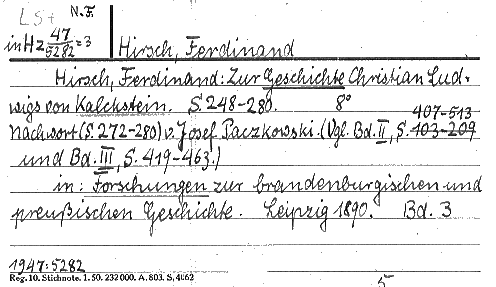 LSt N.F.
in Hz 47/5282 = 3 Hirsch, Ferdinand
Hirsch, Ferdinand: Zur Geschichte Christian Lud-
wigs von Kalckstein. S. 248-280. 8°
407-513
Nachwort (S. 272-280) v. Josef Paczkowski. (Vgl. Bd. II, S. 103-209
und Bd. III, S. 419-463.)
in: Forschungen zur brandenburgischen und
preußischen Geschichte. Leipzig 1890. Bd. 3
1947:5282
Reg. 10. Stichnote. 1. 50. 232000. A. 803. S. 4062
5